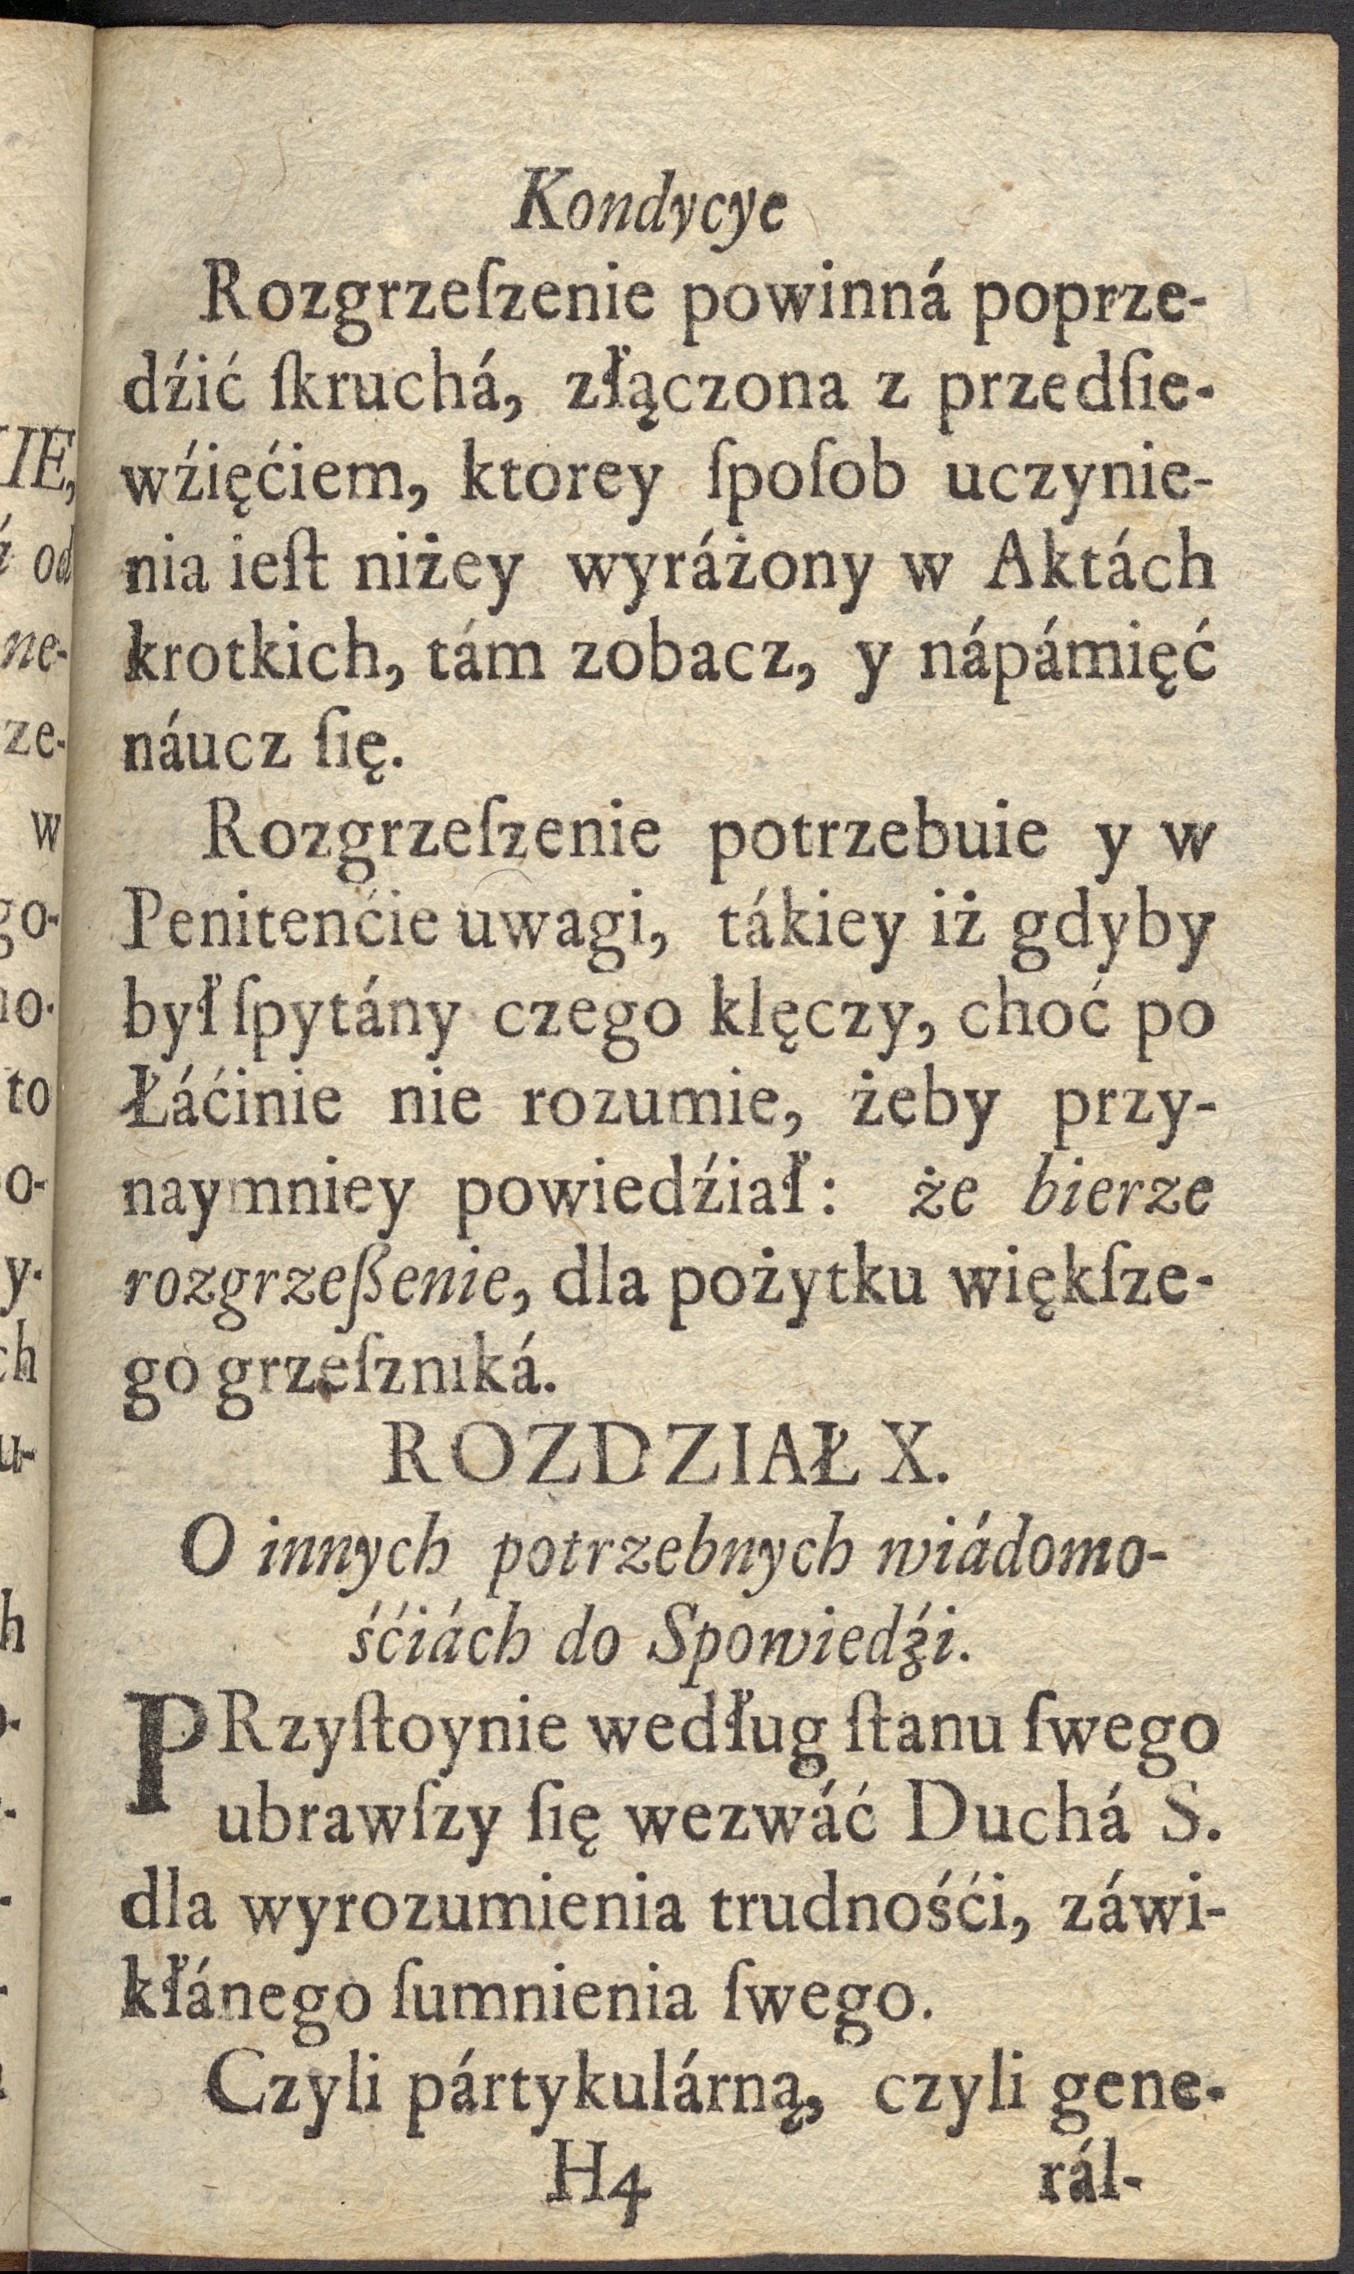 Kondycye
Rozgrzeſzenie powinná poprze-
dźić ſkruchá, złączona z przedſie-
wźięćiem, ktorey ſpoſob uczynie-
nia ieſt niżey wyráżony w Aktách
krotkich, tám zobacz, y nápámięć
náucz ſię.
Rozgrzeſzenie potrzebuie y w
Penitenćie uwagi, tákiey iż gdyby
był ſpytány czego klęczy, choć po
Łáćinie nie rozumie, żeby przy-
naymniey powiedźiał: że bierze
rozgrzeßenie, dla pożytku więkſze-
go grzeſzniká.
ROZDZIAŁ X.
O innych potrzebnych wiádomo-
śćiách do Spowiedźi.
PRzyſtoynie według ſtanu ſwego
ubrawſzy ſię wezwáć Duchá S.
dla wyrozumienia trudnośći, záwi-
kłánego ſumnienia ſwego.
Czyli pártykulárną, czyli gene-
H4 rál-